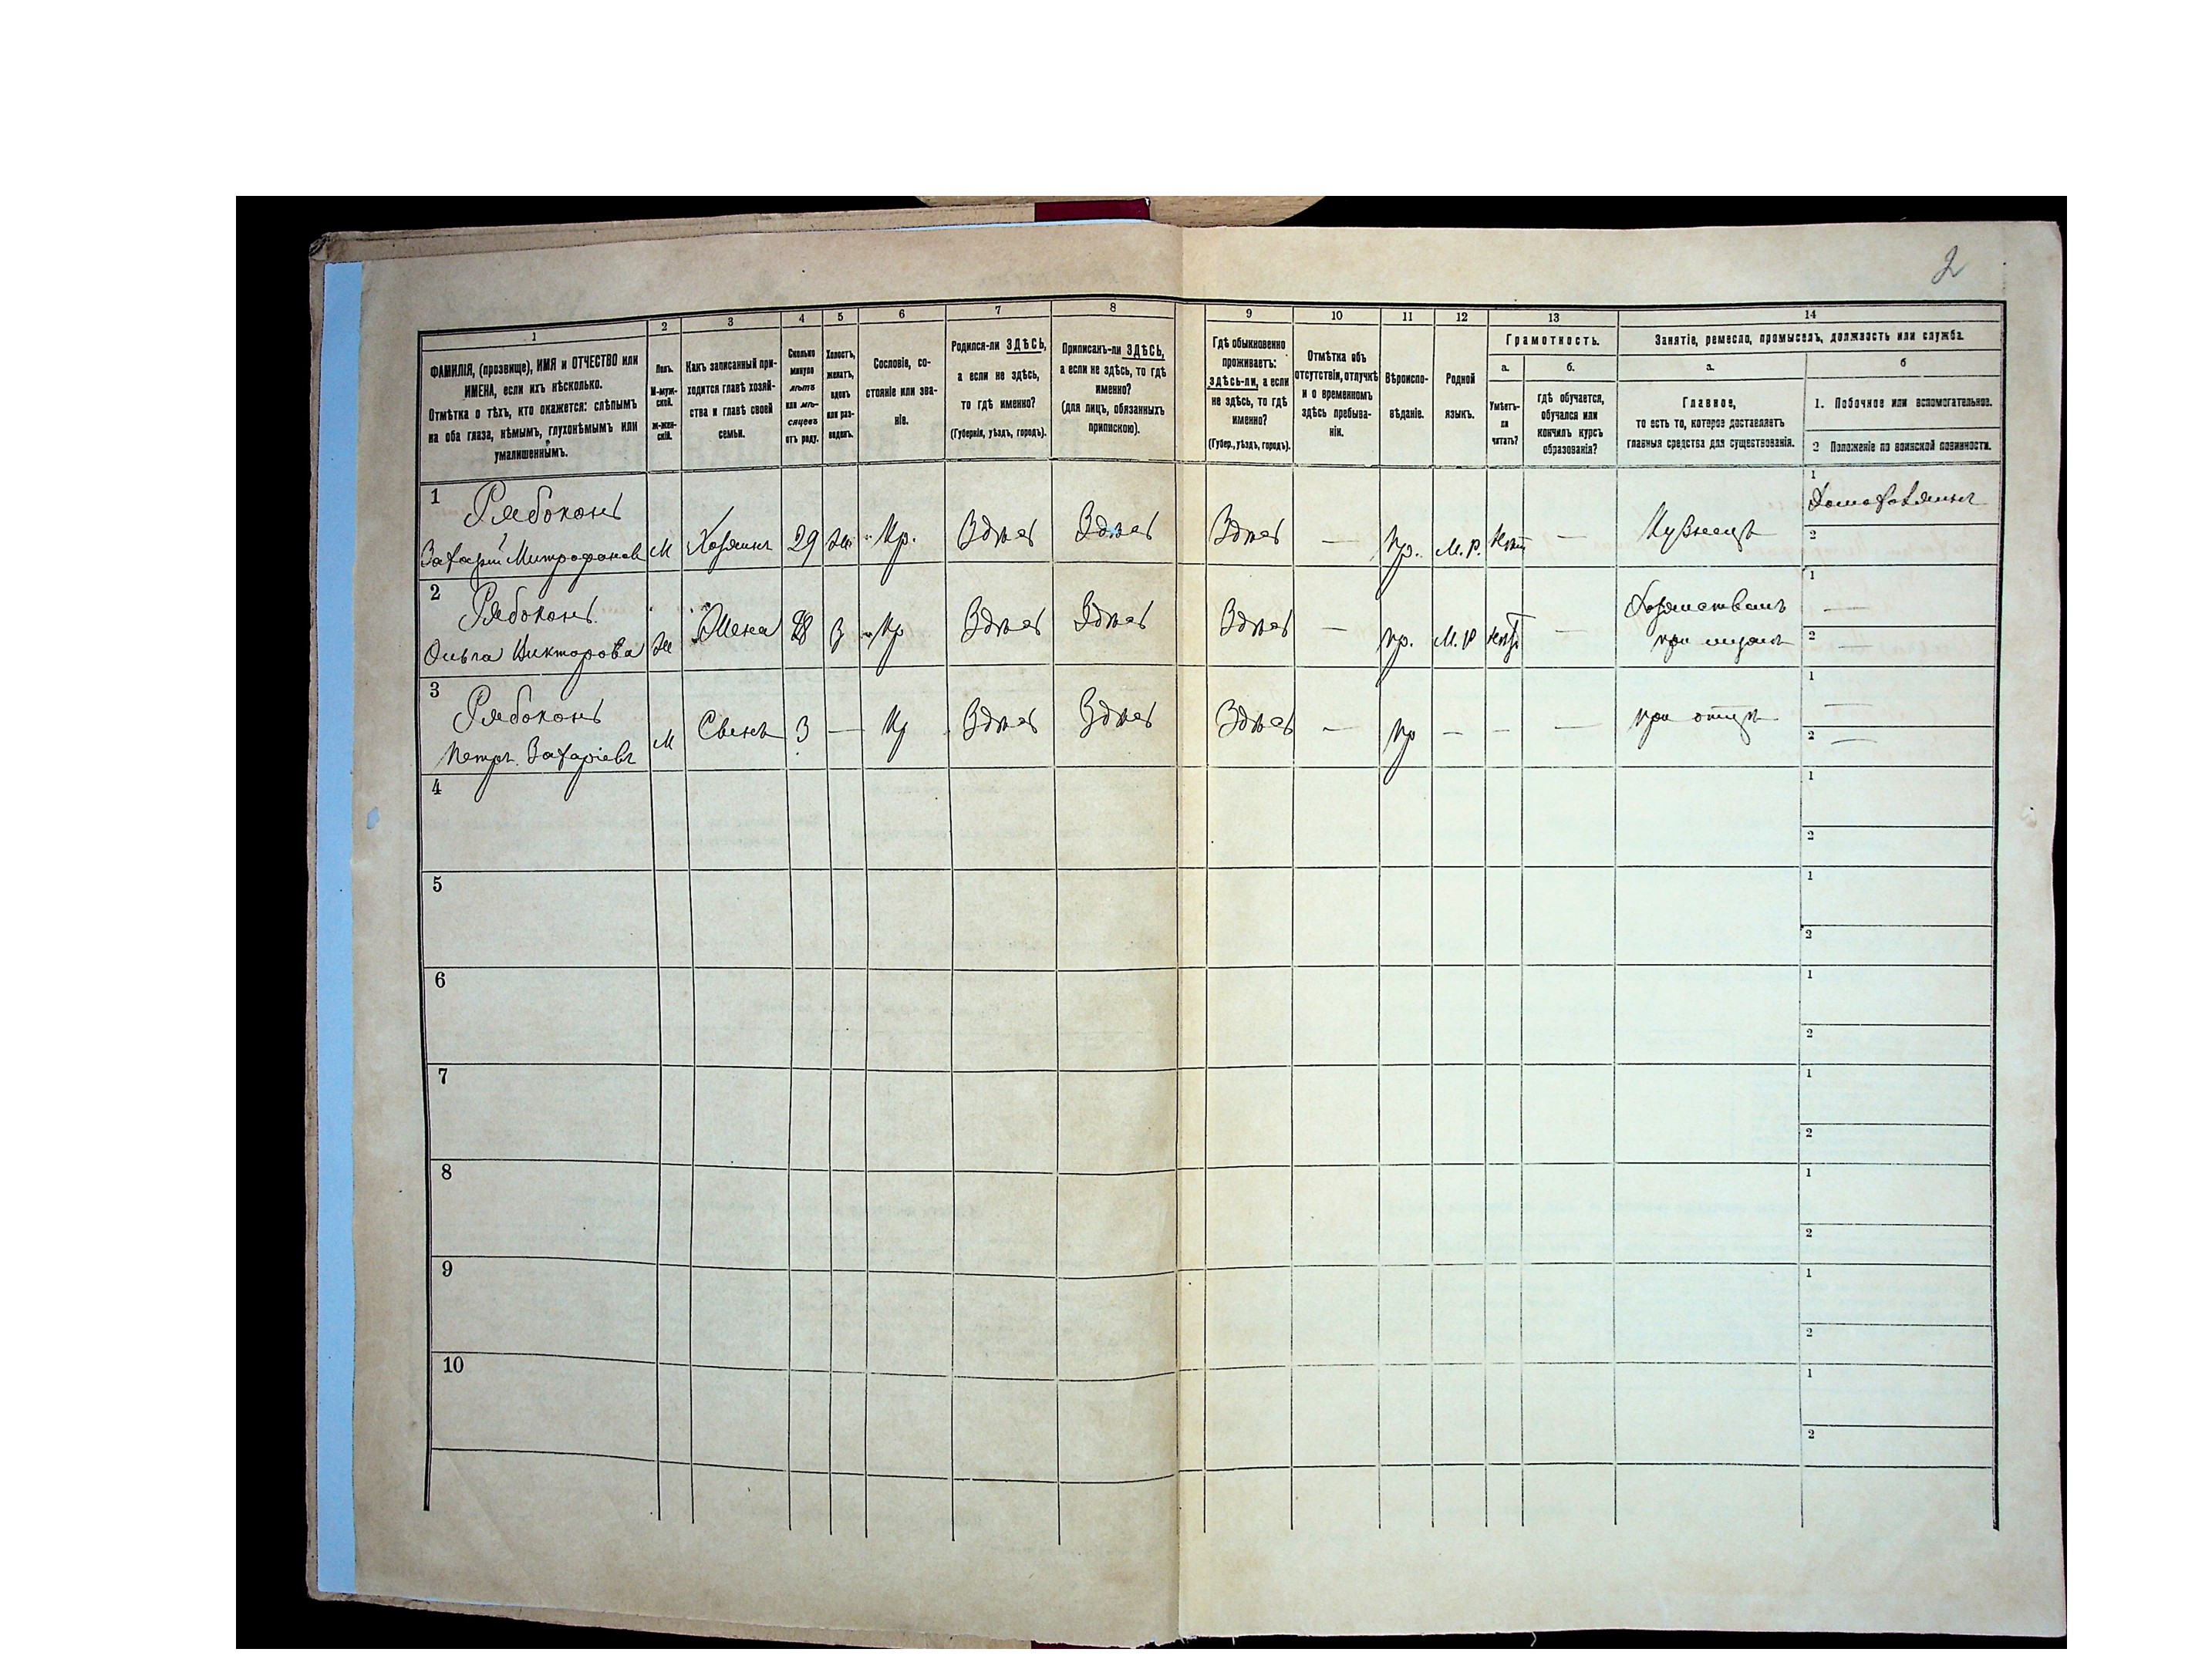 2
1 2 3 4 5 6 7 8 9 10 11 12 13 14
ФАМИЛІЯ, (прозвище), ИМЯ и ОТЧЕСТВО или
ИМЕНА, если ихъ нѣсколько.
Отмѣтка о тѣхъ, кто окажется: слѣпымъ
на оба глаза, нѣмымъ, глухонѣмымъ или
умалишеннымъ.
Полъ.
М-муж-
ской.
ж-жен-
скій.
Какъ записанный при-
ходится главѣ хозяй-
ства и главѣ своей
семьи.
Сколько
минуло
лѣтъ
или мѣ-
сяцевъ
отъ роду.
Холостъ,
женатъ,
вдовъ
или раз-
веденъ.
Сословіе, со-
стояніе или зва-
ніе.
Родился-ли ЗДѢСЬ,
а если не здѣсь,
то гдѣ именно?
(Губернія, уѣздъ, городъ).
Приписанъ-ли ЗДѢСЬ,
а если не здѣсь, то гдѣ
именно?
(для лицъ, обязанныхъ
припискою).
Гдѣ обыкновенно
проживаетъ:
здѣсь-ли, а если
не здѣсь, то гдѣ
именно?
(Губер., уѣздъ, городъ).
Отмѣтка объ
отсутствіи, отлучкѣ
и о временномъ
здѣсь пребыва-
ніи.
Вѣроиспо-
вѣданіе.
Родной
языкъ.
Грамотность.
а.
Умѣетъ-
ли
читать?
б.
гдѣ обучается,
обучался или
кончилъ курсъ
образованія?
Занятіе, ремесло, промыселъ, должность или служба.
а.
Главное,
то есть то, которое доставляетъ
главныя средства для существованія.
б
1. Побочное или вспомогательное.
2 Положеніе по воинской повинности.
1 Рябоконь
Захарій Митрофановъ М Хозяинъ 29 Ж. Кр. Здѣсь Здѣсь Здѣсь — Пр. М.Р. Нѣтъ — Кузнецъ
1
2
2 Рябоконь
Ольга Викторова Ж Жена 28 З Кр Здѣсь Здѣсь Здѣсь — пр. М.Р нѣтъ —
при мужѣ
1 —
2 —
3 Рябоконь
Петръ Захаріевъ М Сынъ 3 — Кр Здѣсь Здѣсь Здѣсь — Пр — — — при отцѣ
1 —
2 —
4
1
2
5
1
2
6
1
2
7
1
2
8
1
2
9
1
2
10
1
2